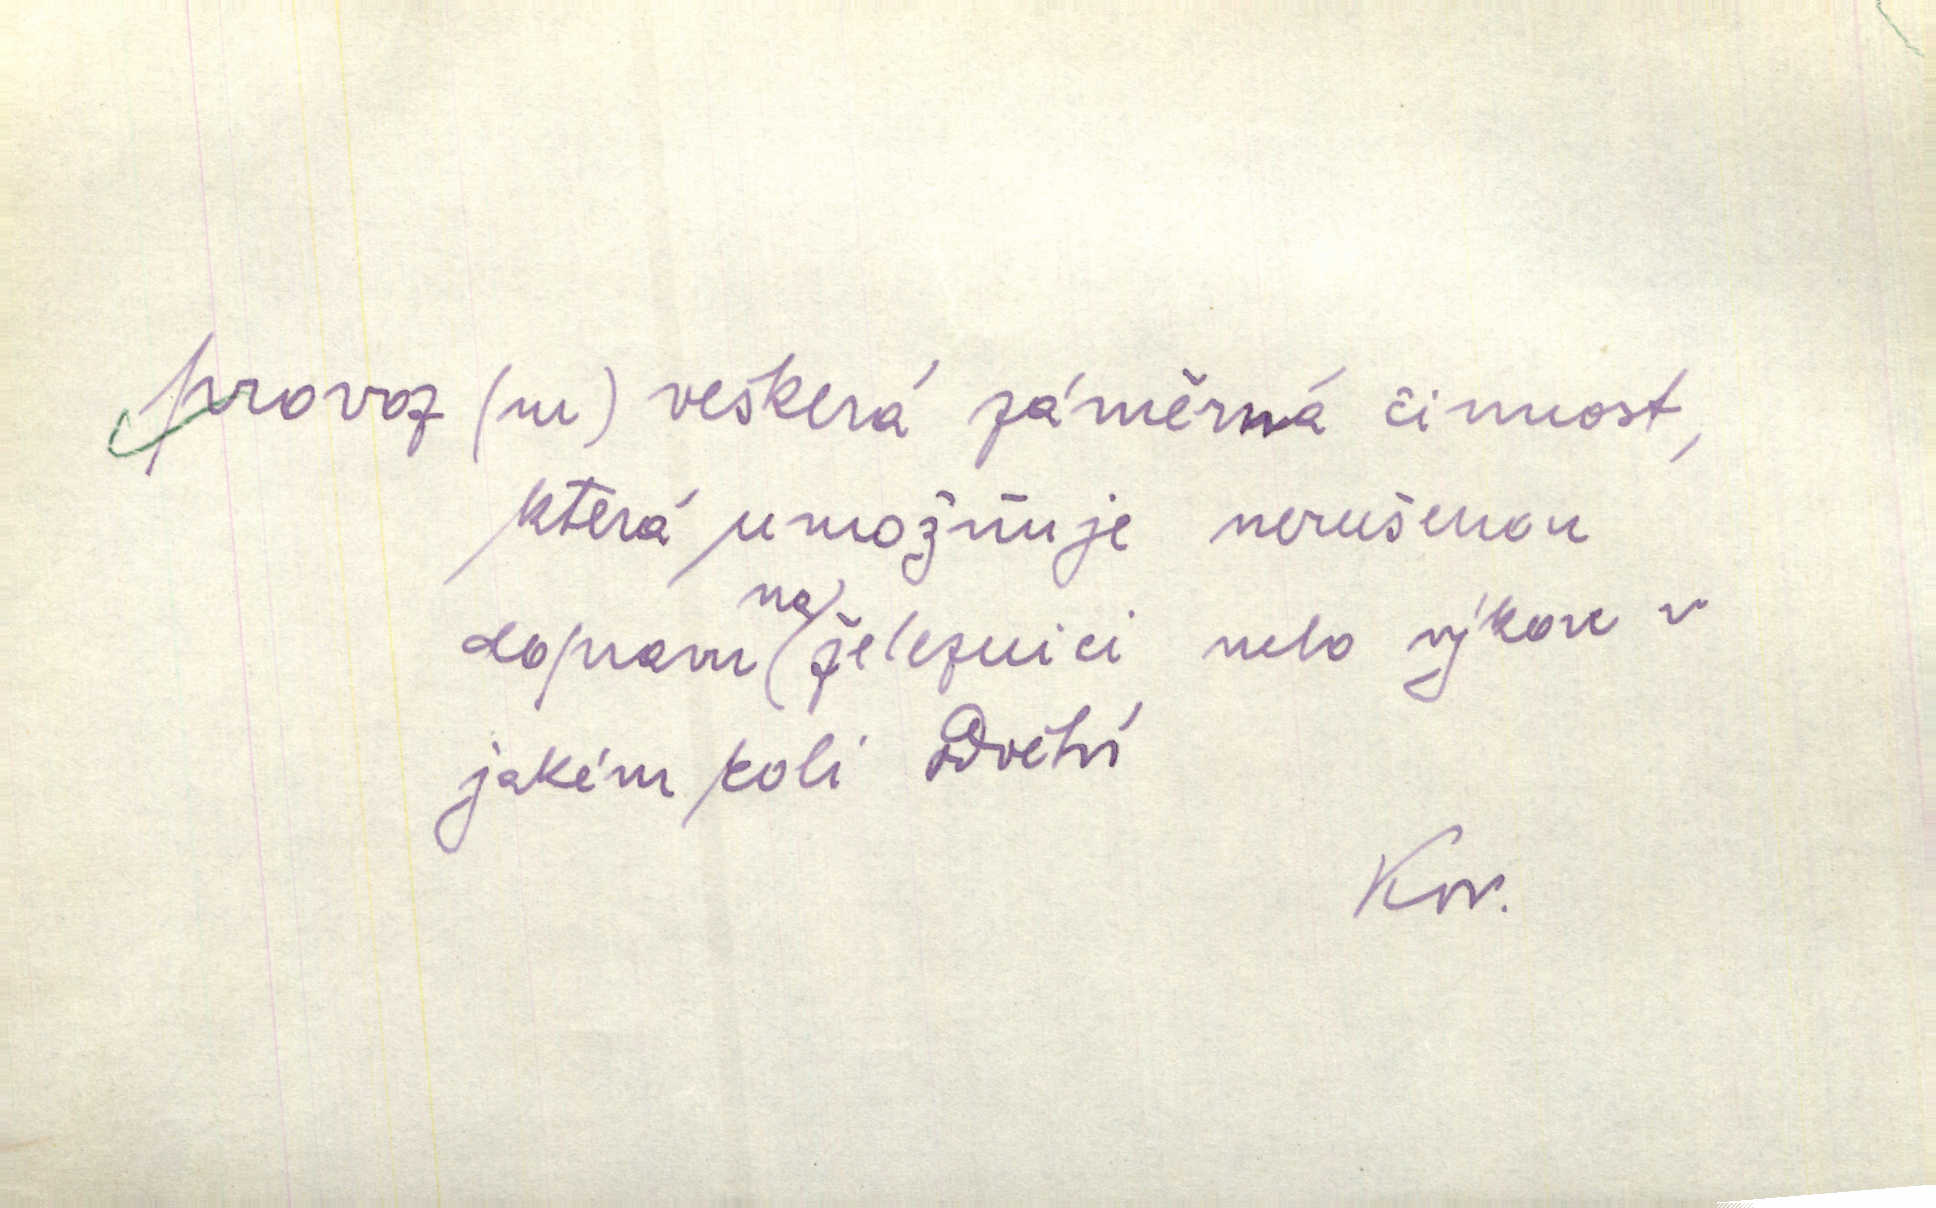 provoz (m) veškerá záměrná činnost,
která umožňuje nerušenou
dopravu na železnici nebo výkon v
jakémkoli odvětví
Kov.